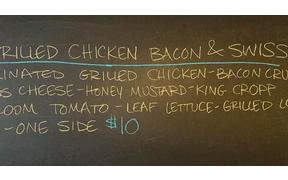 RILLED CHICKEN BACON & SWISS
INATED GRILLED CHICKEN-BACON CRU
S CHEESE-HONEY MUSTARD-KING CROPP
LOOM TOMATO-LEAF LETTUCE-GRILLED LO
-ONE SIDE $10